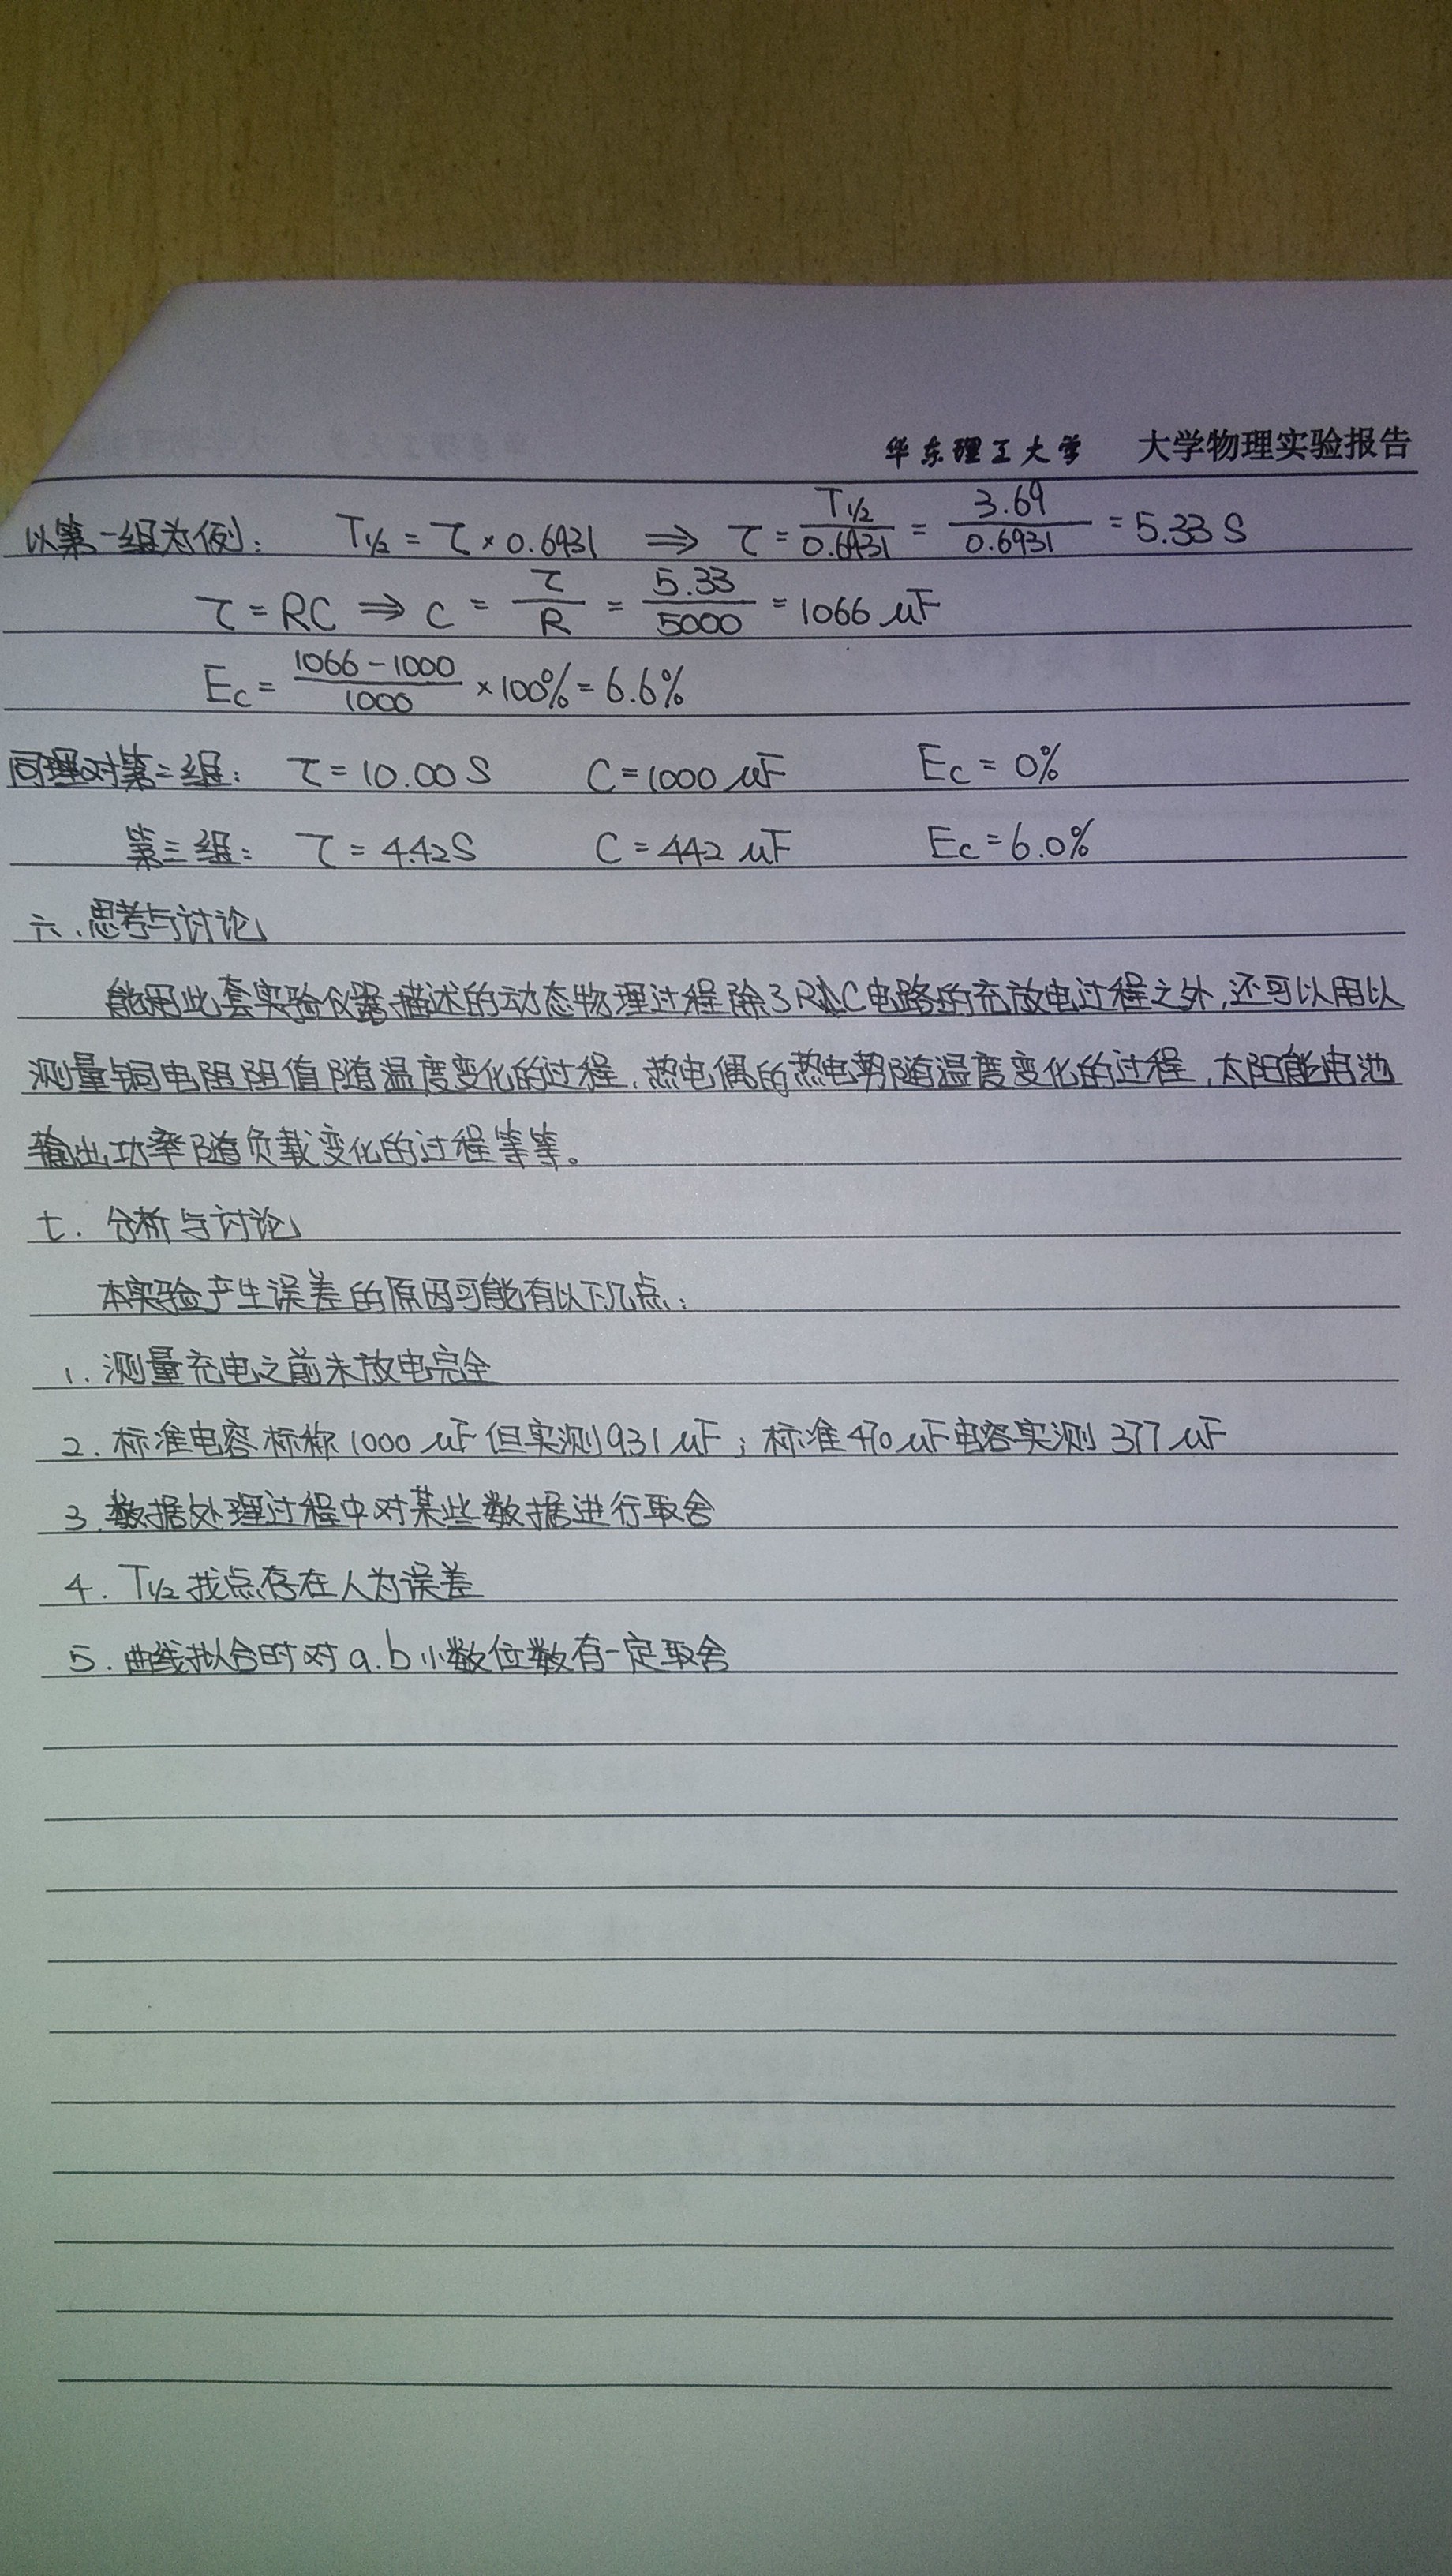 华东理工大学 大学物理实验报告
以第一组为例: T1/2 = τ × 0.6931 ⇒ τ = T1/2 / 0.6931 = 3.69 / 0.6931 = 5.33 S
τ = RC ⇒ C = τ / R = 5.33 / 5000 = 1066 μF
Ec = (1066-1000) / 1000 × 100% = 6.6%
同理对第二组: τ = 10.00 S C = 1000 μF Ec = 0%
第三组: τ = 4.42 S C = 442 μF Ec = 6.0%
六、思考与讨论
能用此套实验仪器描述的动态物理过程除了RC电路的充放电过程之外,还可以用以
测量铜电阻阻值随温度变化的过程,热电偶的热电势随温度变化的过程,太阳能电池
输出功率随负载变化的过程等等。
七. 分析与讨论
本实验产生误差的原因可能有以下几点:
1. 测量充电之前未放电完全
2. 标准电容标称1000 μF 但实测931 μF; 标准470 μF电容实测 377 μF
3. 数据处理过程中对某些数据进行取舍
4. T1/2 找点存在人为误差
5. 曲线拟合时对a.b小数位数有一定取舍